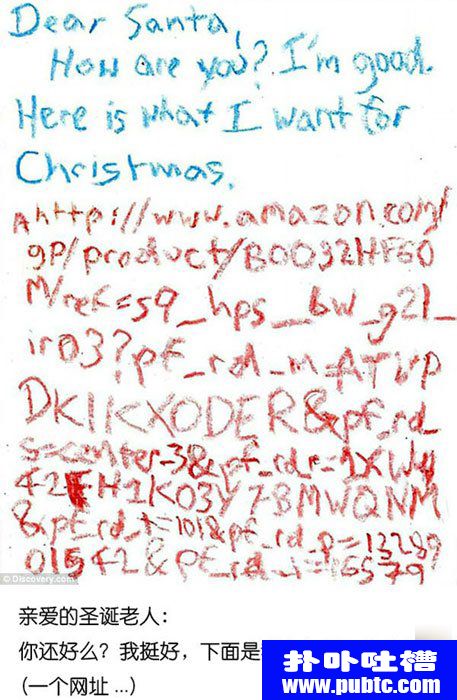 Dear Santa,
How are you? I'm good.
Here is what I want for
Christmas.
A http://www.amazon.com/
gp/product/B0032HF60
M/ref=s9_hps_bw_g21_
ir03?pf_rd_m=ATVP
DKIKXODER&pf_rd_
s=center-3&pf_rd_r=1XWY
42FH1K03Y7BMWQNM
&pf_rd_t=101&pf_rd_p=13289
01542&pf_rd_i=165579
© Discovery.com
亲爱的圣诞老人:
你还好么?我挺好,下面是
(一个网址 ...)
扑卟吐槽
www.pubtc.com